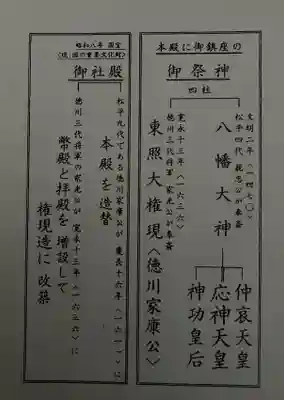 本殿に御鎮座の
御祭神
四柱
文明二年（一四七〇）
松平四代 親忠公が奉斎
八幡大神
仲哀天皇
応神天皇
神功皇后
寛永十三年（一六三六）
徳川三代将軍 家光公が奉斎
東照大権現〈徳川家康公〉
昭和八年 国宝
（現 国の重要文化財）
御社殿
松平九代である徳川家康公が 慶長十六年（一六一一）に
本殿を造替
徳川三代将軍の家光公が 寛永十三年（一六三六）に
幣殿と拝殿を増設して
権現造に改築